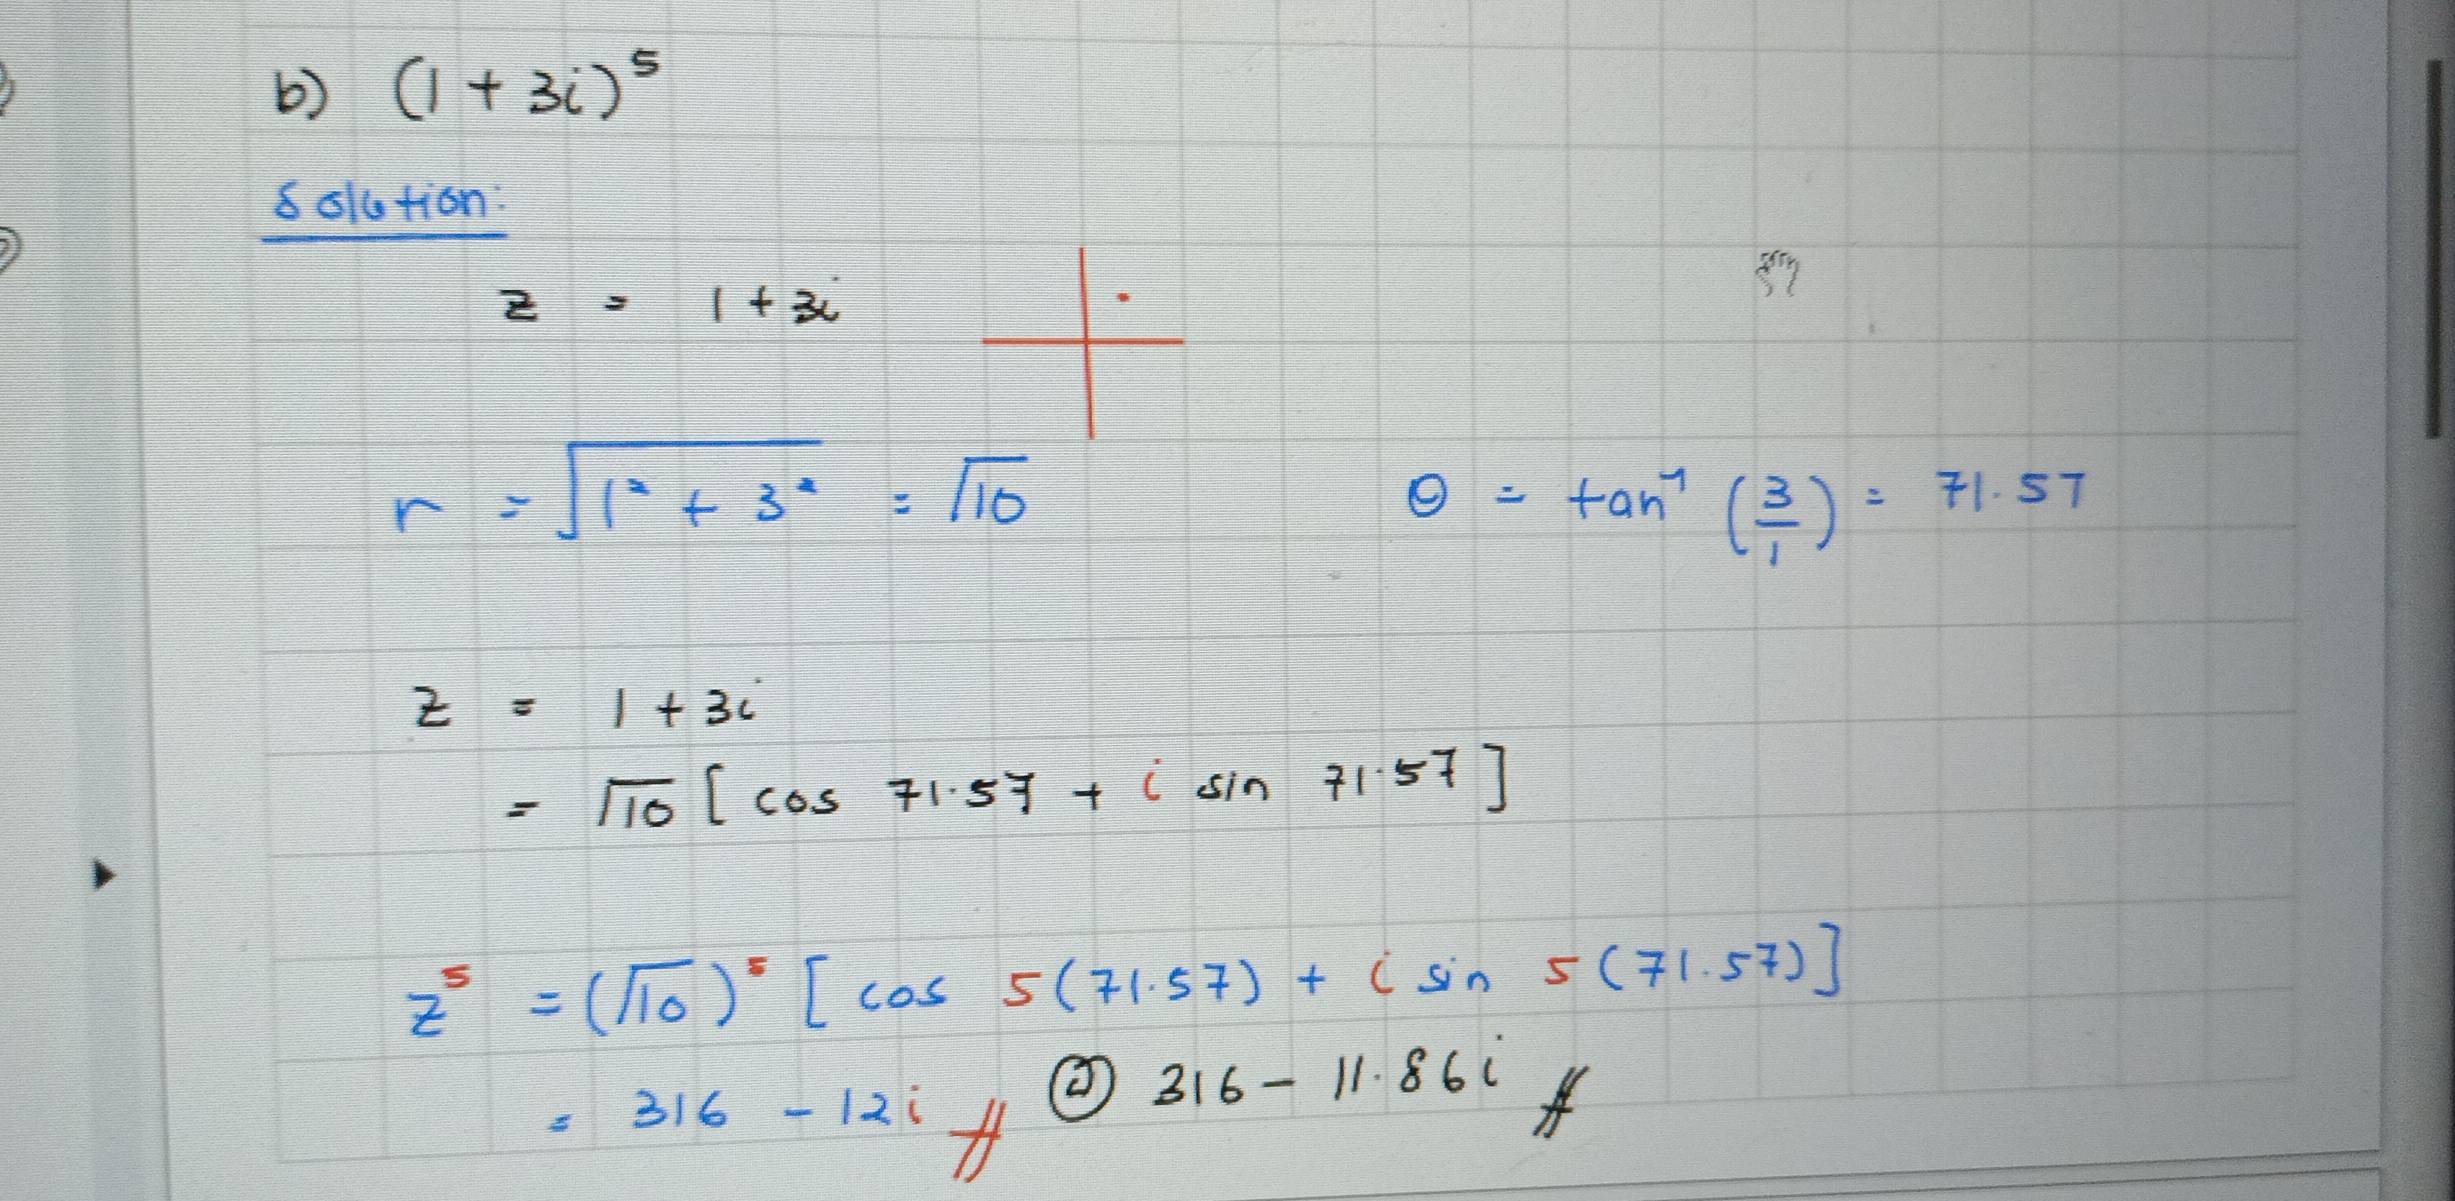 b) (1 + 3i)⁵
Solution:
z = 1 + 3i
r = √(1² + 3²) = √10    θ = tan⁻¹ (3/1) = 71.57
z = 1 + 3i
= √10 [ cos 71.57 + i sin 71.57 ]
z⁵ = (√10)⁵ [ cos 5(71.57) + i sin 5(71.57) ]
= 316 - 12i // @ 316 - 11.86i //